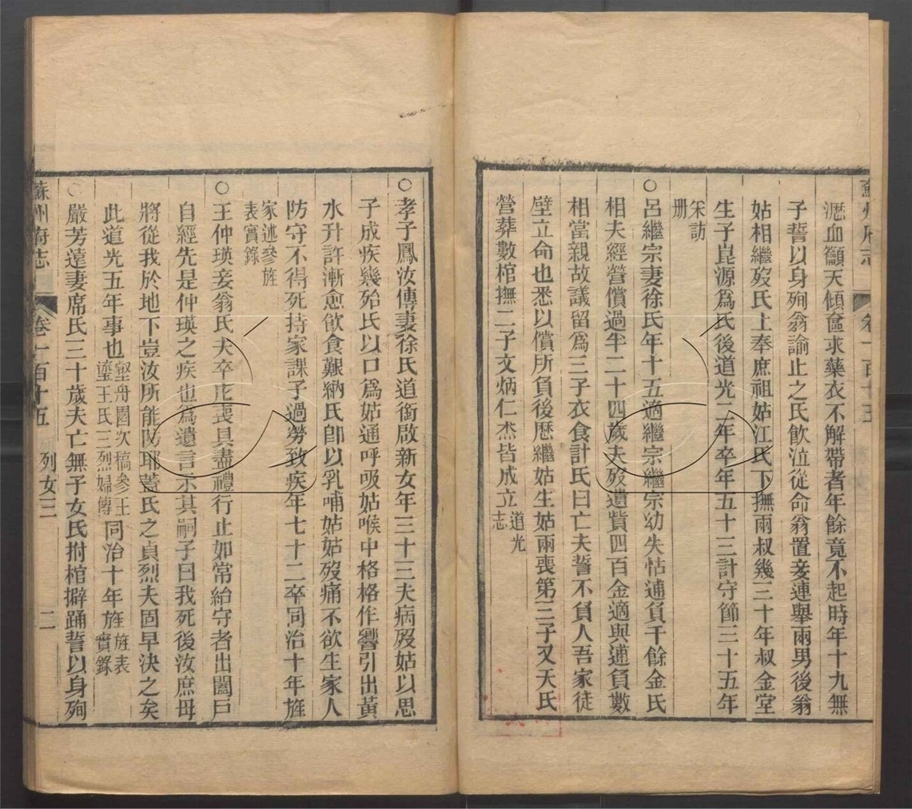 蘇州府志 卷一百十五
瀝血籲天傾奩求藥衣不解帶者年餘竟不起時年十九無
子誓以身殉翁諭止之氏飲泣從命翁置妾連舉兩男後翁
姑相繼歿氏上奉庶祖姑江氏下撫兩叔幾三十年叔金堂
生子崑源爲氏後道光二年卒年五十三計守節三十五年
采訪
册
○呂繼宗妻徐氏年十五適繼宗繼宗幼失怙逋負千餘金氏
相夫經營償過半二十四歲夫歿遺貲四百金適與逋負數
相當親故議留爲三子衣食計氏曰亡夫誓不負人吾家徒
壁立命也悉以償所負後歷繼姑生姑兩喪第三子又夭氏
營葬數棺撫二子文炳仁杰皆成立道光
志
○孝子鳳汝傳妻徐氏道銜啟新女年三十三夫病歿姑以思
子成疾幾殆氏以口爲姑通呼吸姑喉中格格作響引出黃
水升許漸愈飲食艱納氏卽以乳哺姑姑歿痛不欲生家人
防守不得死持家課子過勞致疾年七十二卒同治十年旌
家述參旌
表實錄
○王仲瑛妾翁氏夫卒庀喪具盡禮行止如常紿守者出闔戶
自經先是仲瑛之疾也爲遺言示其嗣子曰我死後汝庶母
將從我於地下豈汝所能防耶蓋氏之貞烈夫固早決之矣
此道光五年事也壑舟園次稿參王
瑬王氏三烈婦傳同治十年旌旌表
實錄
○嚴芳遠妻席氏三十歲夫亡無子女氏拊棺擗踊誓以身殉
蘇州府志 卷一百十五 列女三 二